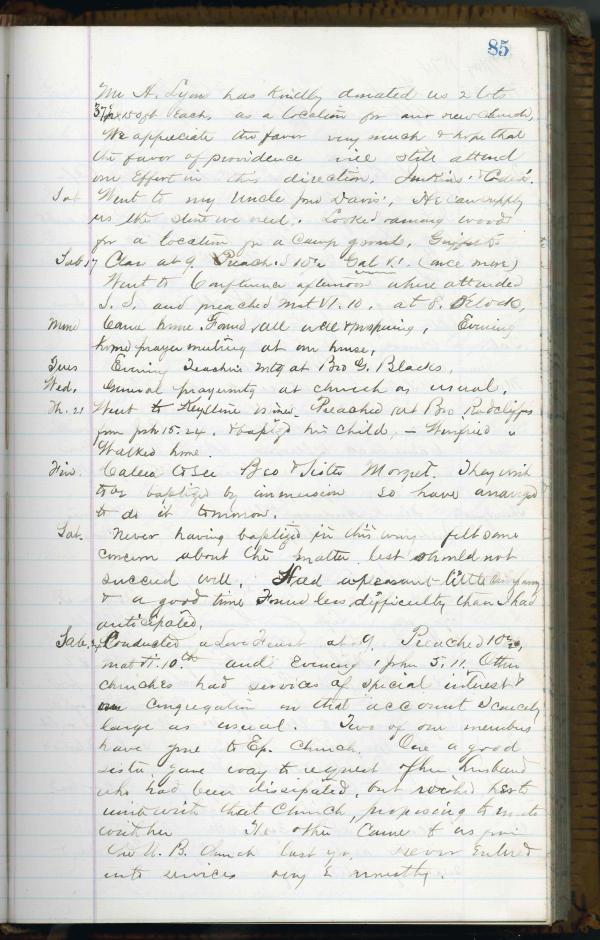 85
Mr A. Lyon has kindly donated us 2 lots
37½ x 150 ft each, as a location for our new church,
We appreciate the favor very much & hope that
the favor of providence will still attend
our effort in this direction.
Sat Went to my Uncle Davis', He can supply
us the we need. Looked among woods
for a location for a camp ground,
Sab 17 Class at 9. Preached 10½ Gal V.1. (once more)
Went to afternoon where attended
S. S. and preached Mat VI.10. at 8. Oclock,
Mond Came home. Found all well & prospering, Evening
home prayer meeting at our house,
Tues Evening Teachers Mtg at Bro G. Blacks,
Wed. General prayer mtg at church as usual.
Th. 21 Went to Preached at Bro Radcliffs
from 15.24. & baptized his child, —
Walked home.
Called to see Bro & Sister They wish
to be baptized by immersion so have arranged
to do it tomorrow.
Sat. Never having baptized in this way felt some
concern about the matter lest should not
succeed well, Had a pleasant little company
& a good time Found less difficulty than I had
anticipated.
Sab. Conducted a Love Feast at 9. Preached 10½,
Mat VI. 10th and Evening 1 John 5.11, Other
churches had services of special interest &
our congregation on that account scarcely
large as usual. Two of our members
have gone to Ep. Church. One a good
sister, gave way to request of her husband
who had been dissipated, but wished her to
unite with that Church, proposing to unite
with her The other Came to us from
the U. B. Church last yr, never Entered
into services very Earnestly.